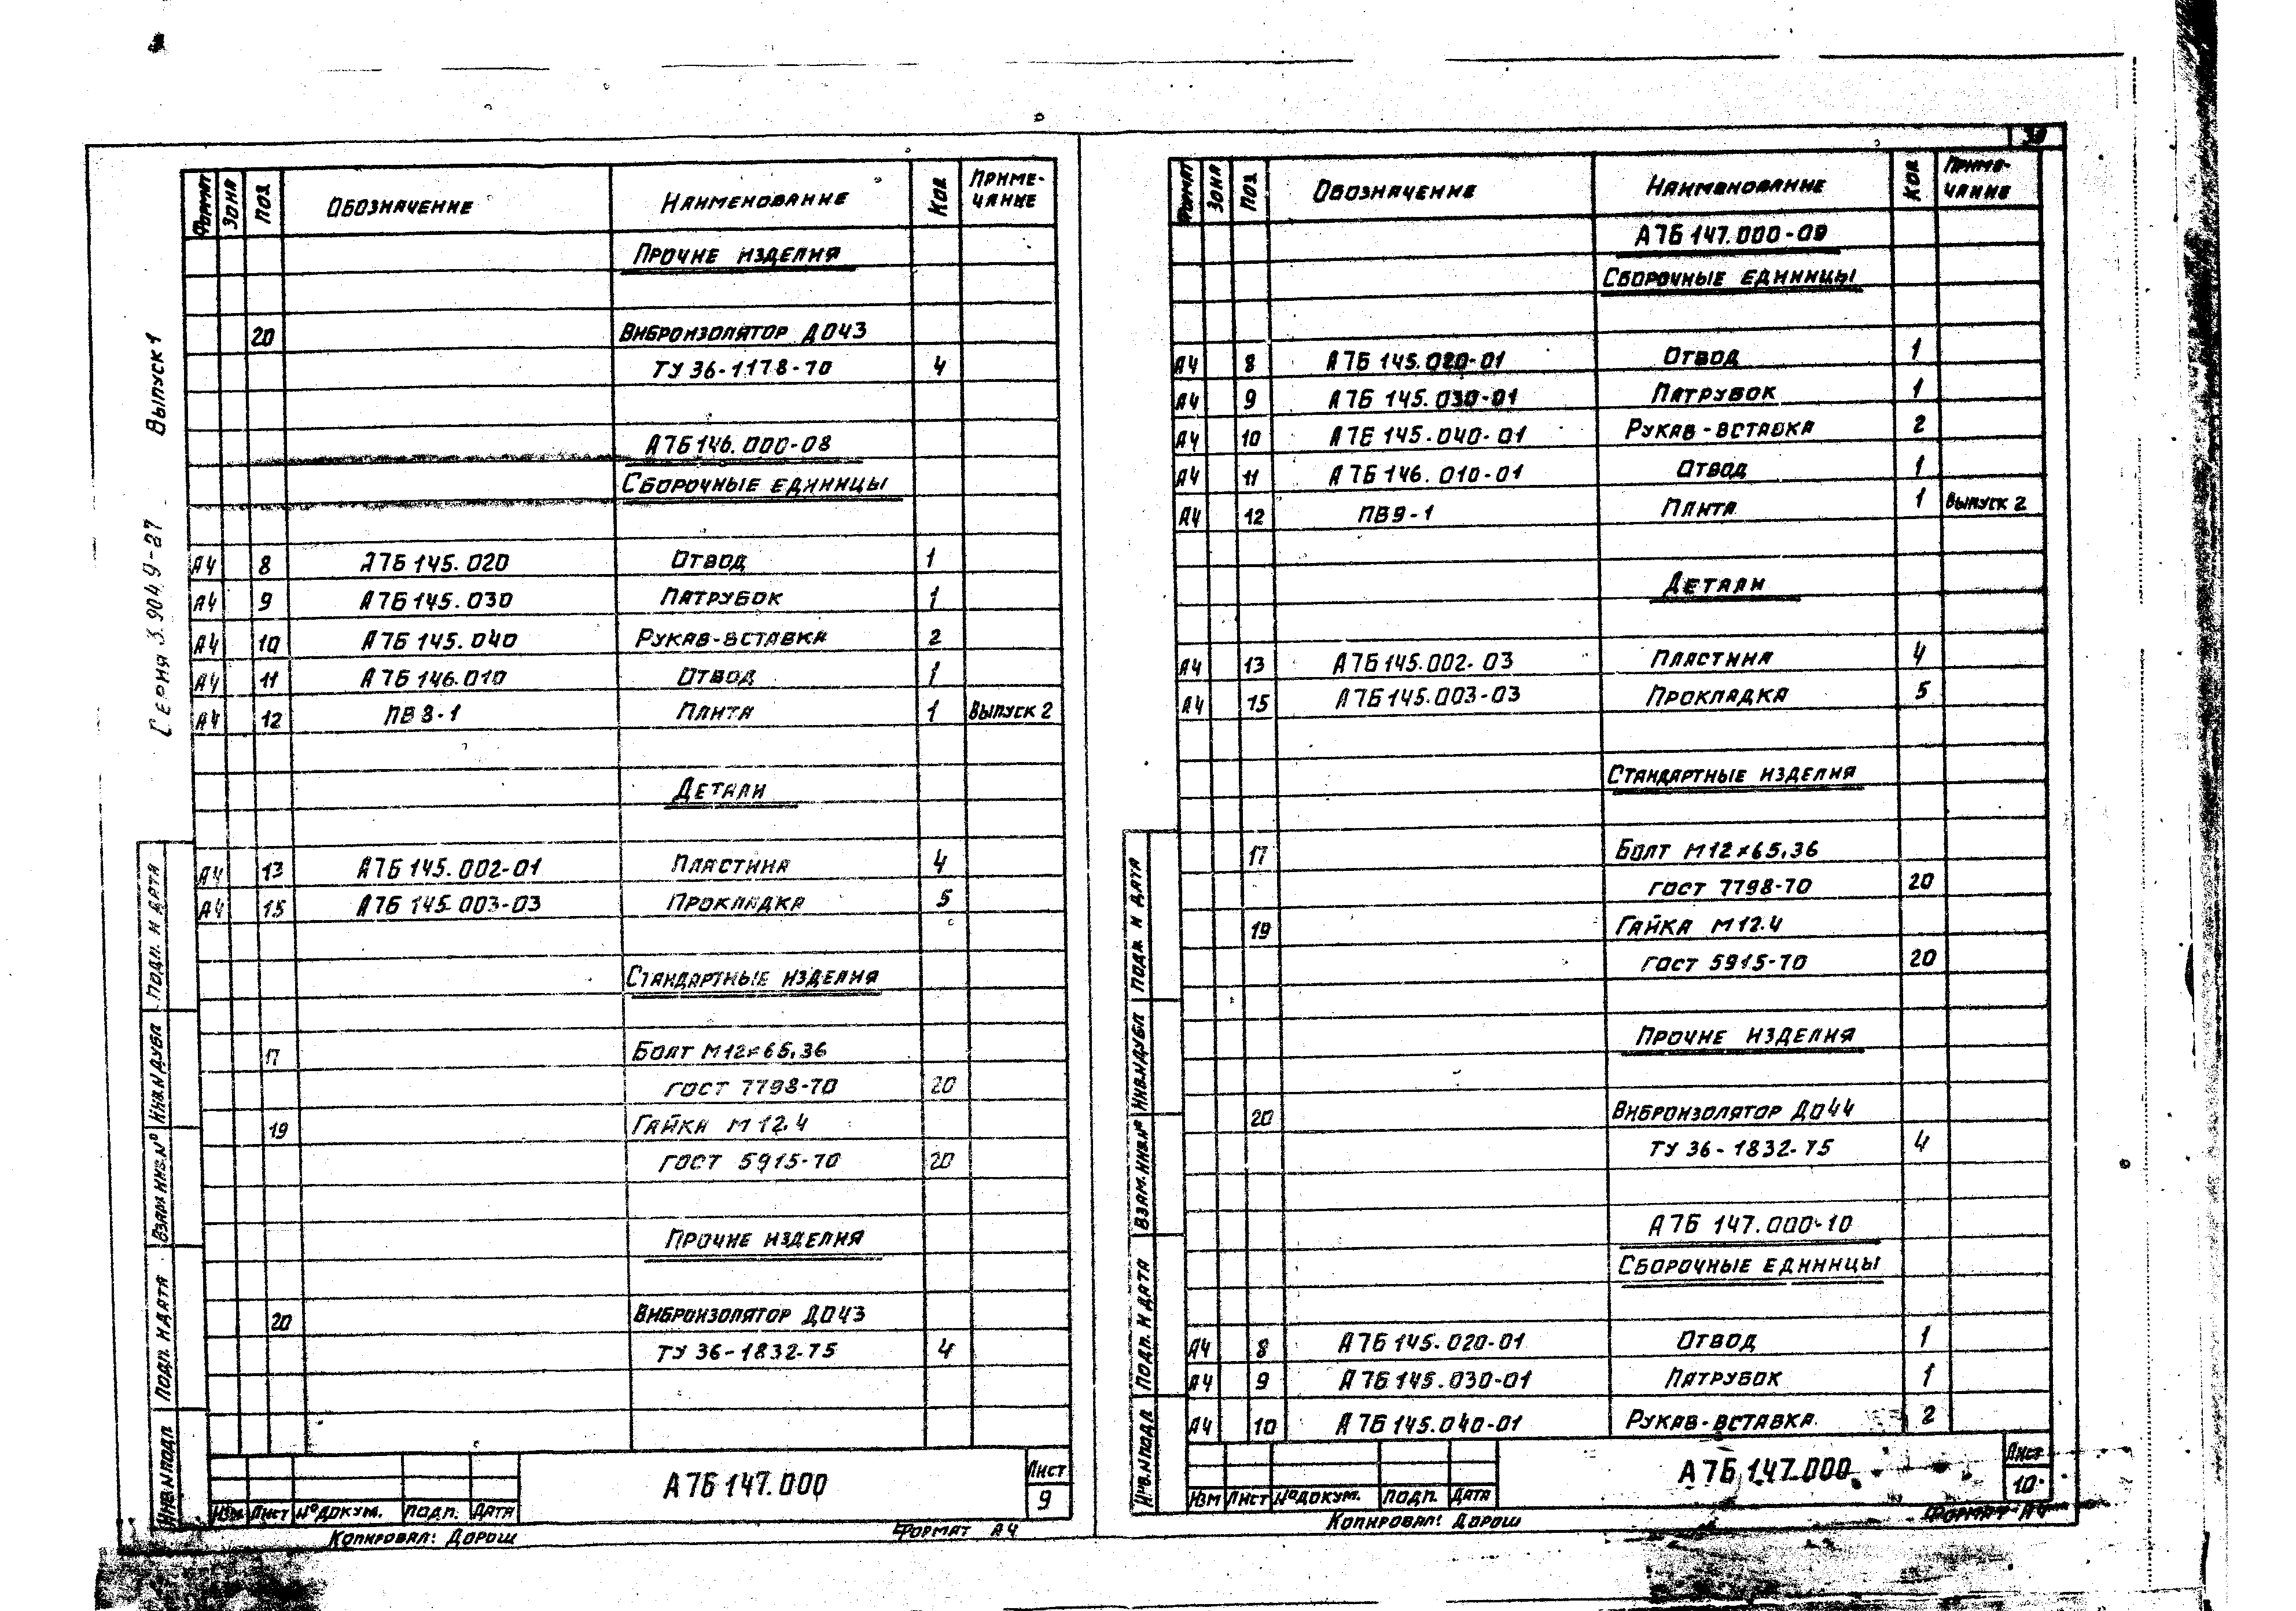 Серия 3.904.9-27 Выпуск 1
Формат Зона Поз Обозначение Наименование Кол Приме-
чание
Прочие изделия
20 Виброизолятор ДО43
ТУ 36-1178-70 4
А7Б 146.000-08
Сборочные единицы
А4 8 А7Б 145.020 Отвод 1
А4 9 А7Б 145.030 Патрубок 1
А4 10 А7Б 145.040 Рукав-вставка 2
А4 11 А7Б 146.010 Отвод 1
А4 12 ПВ 8-1 Плита 1 Выпуск 2
Детали
А4 13 А7Б 145.002-01 Пластина 4
А4 15 А7Б 145.003-03 Прокладка 5
Стандартные изделия
17 Болт М12×65.36
ГОСТ 7798-70 20
19 Гайка М12.4
ГОСТ 5915-70 20
Прочие изделия
20 Виброизолятор ДО43
ТУ 36-1832-75 4
Инв.№подл Подп. и дата Взам.инв.№ Инв.№дубл Подп. и дата
А7Б 147.000
Лист
9
Изм Лист №докум. Подп. Дата
Копировал: Дорош Формат А4
39
Формат Зона Поз Обозначение Наименование Кол Приме-
чание
А7Б 147.000-09
Сборочные единицы
А4 8 А7Б 145.020-01 Отвод 1
А4 9 А7Б 145.030-01 Патрубок 1
А4 10 А7Б 145.040-01 Рукав-вставка 2
А4 11 А7Б 146.010-01 Отвод 1
А4 12 ПВ9-1 Плита 1 Выпуск 2
Детали
А4 13 А7Б 145.002-03 Пластина 4
А4 15 А7Б 145.003-03 Прокладка 5
Стандартные изделия
17 Болт М12×65.36
ГОСТ 7798-70 20
19 Гайка М12.4
ГОСТ 5915-70 20
Прочие изделия
20 Виброизолятор ДО44
ТУ 36-1832-75 4
А7Б 147.000-10
Сборочные единицы
А4 8 А7Б 145.020-01 Отвод 1
А4 9 А7Б 145.030-01 Патрубок 1
А4 10 А7Б 145.040-01 Рукав-вставка 2
Инв.№подл Подп. и дата Взам.инв.№ Инв.№дубл Подп. и дата
А7Б 147.000
Лист
10
Изм Лист №докум. Подп. Дата
Копировал: Дорош Формат А4